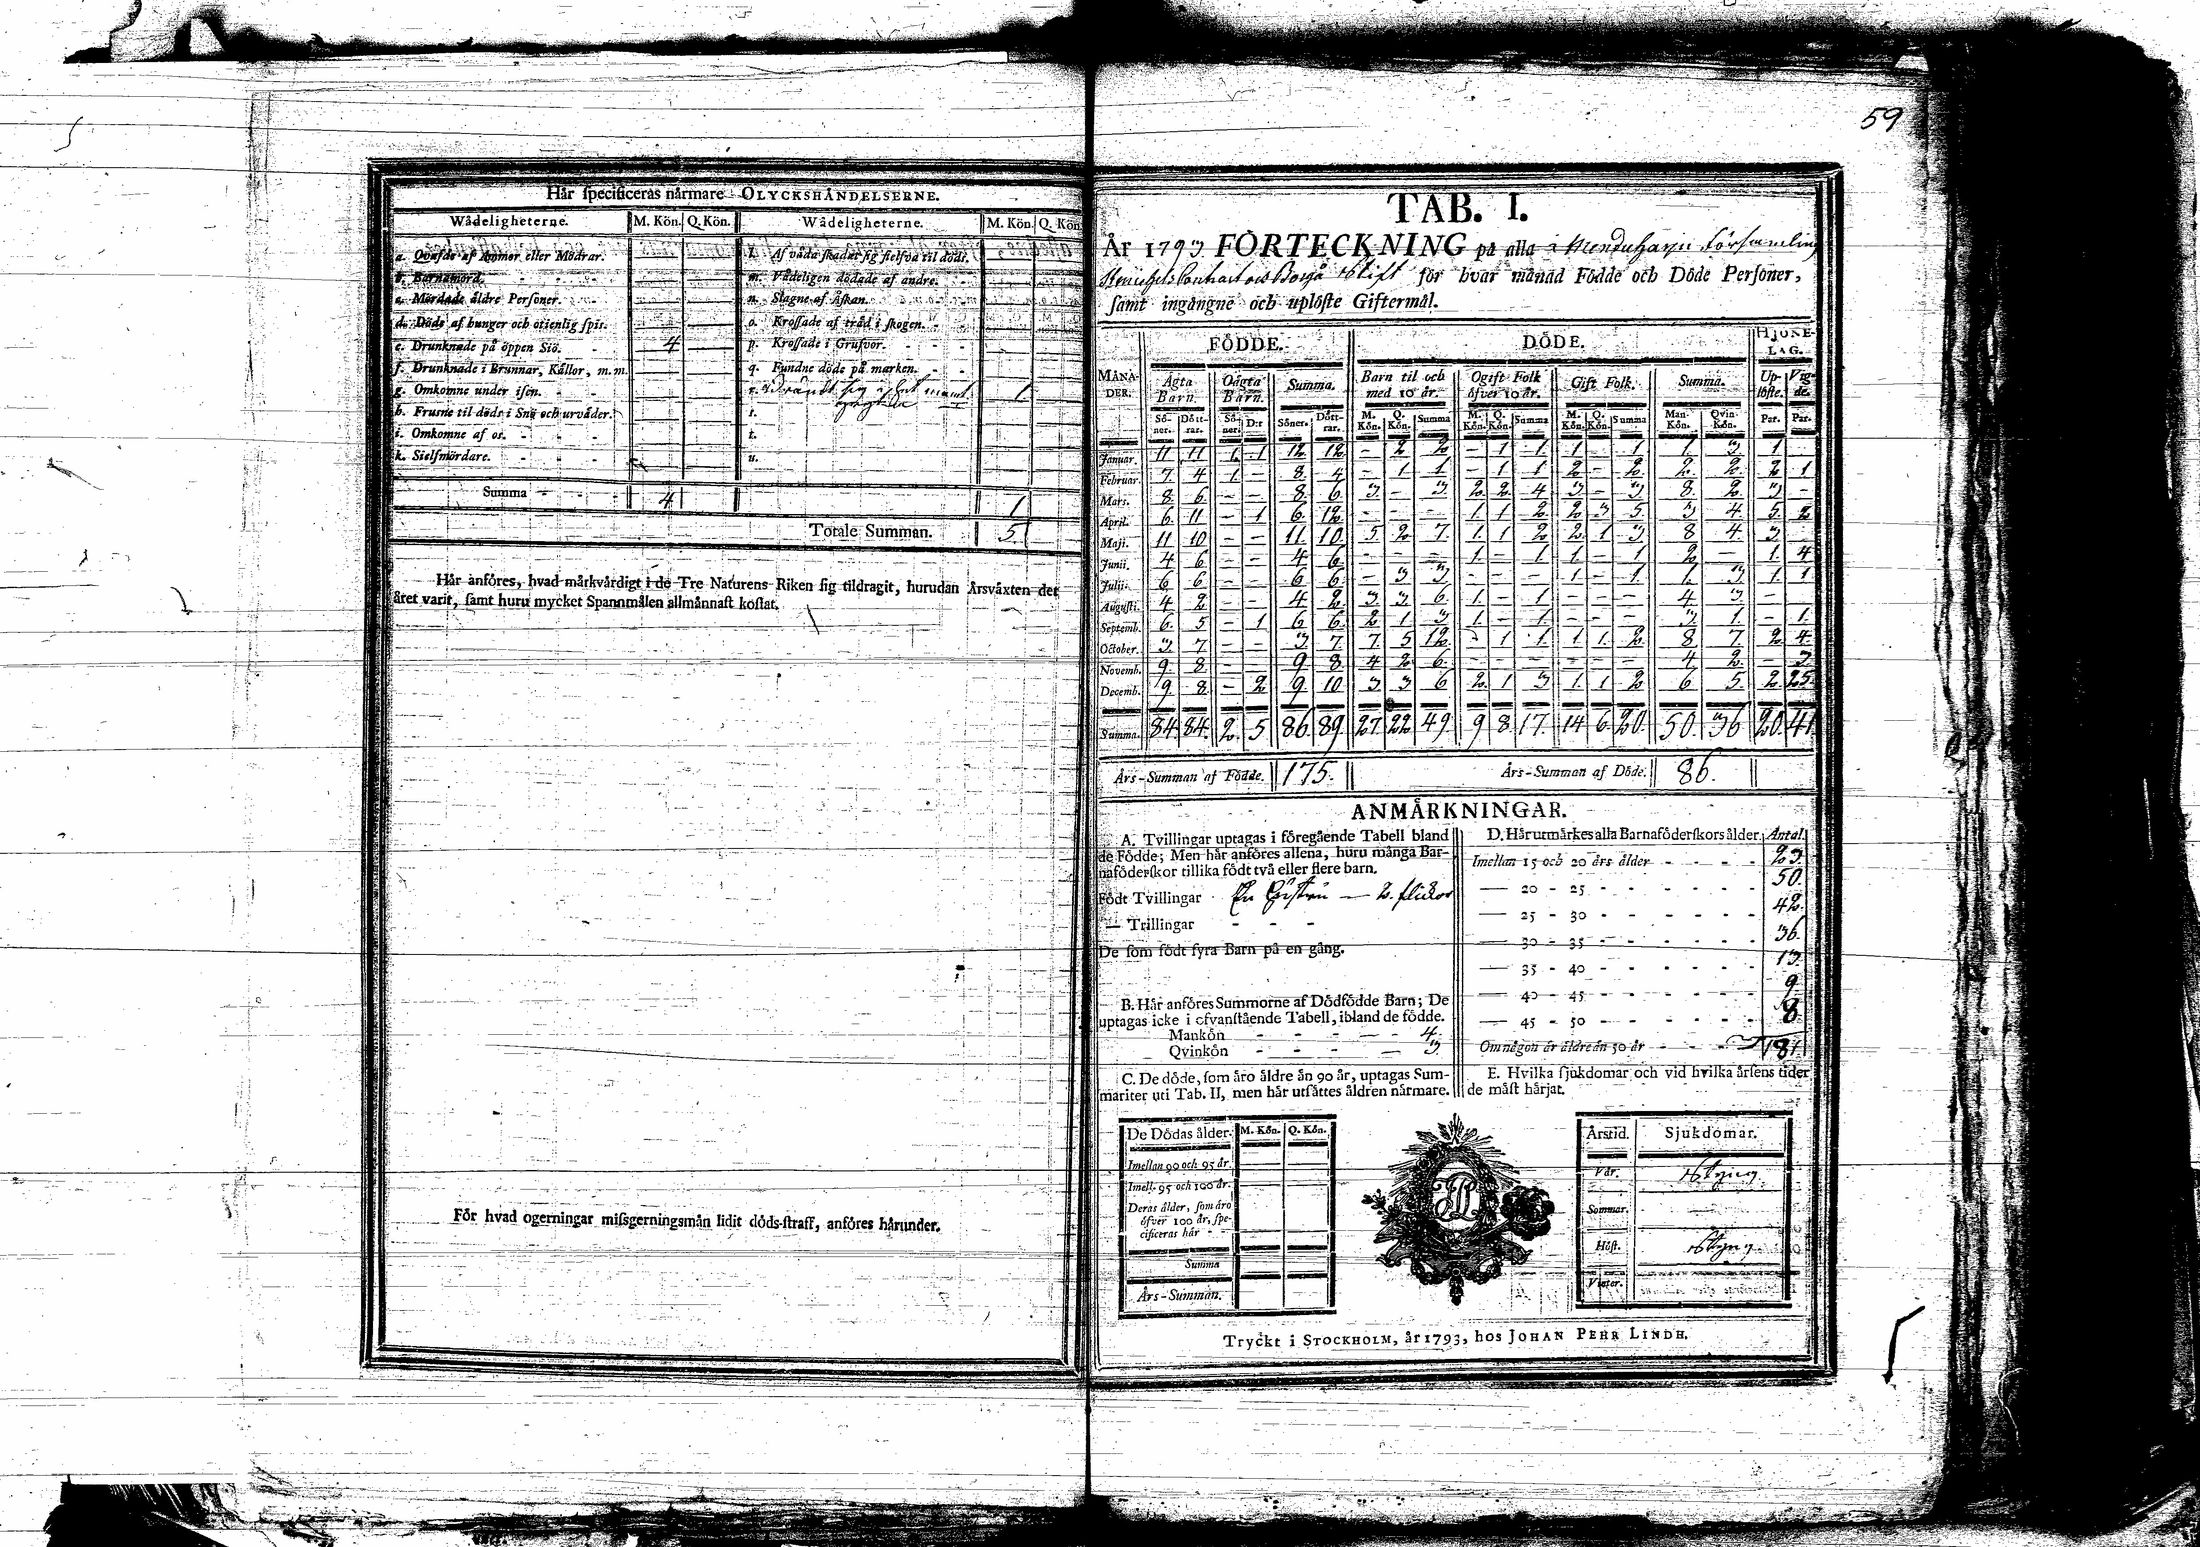 59
Här specificeras närmare OLYCKSHÄNDELSERNE.
Wådeligheterne. M. Kön. Q. Kön. Wådeligheterne. M. Kön. Q. Kön.
a. Qvafde af Ammor eller Mödrar. l. Af våda skadat sig sielfva til döds.
b. Barnamord. m. Vådeligen dödade af andre.
c. Mördade äldre Personer. n. Slagne af Åskan.
d. Döde af hunger och otienlig spis. o. Krossade af träd i skogen.
e. Drunknade på öppen Siö. 4 p. Krossade i Grufvor.
f. Drunknade i Brunnar, Källor, m. m. q. Fundne döde på marken.
g. Omkomne under isen. r. 1
h. Frusne til döds i Snö och urväder. s.
i. Omkomne af os. t.
k. Sielfmördare. u.
Summa 4 1
Totale Summan. 5
Här anföres, hvad märkvärdigt i de Tre Naturens Riken sig tildragit, hurudan Årsväxten det
året varit, samt huru mycket Spannmålen allmännast kostat.
För hvad ogerningar missgerningsmän lidit döds-straff, anföres härunder.
TAB. I.
År 1793 FÖRTECKNING på alla i Menduharju Församling
och Borgå Stift för hvar månad Födde och Döde Personer,
samt ingångne och uplöste Giftermål.
FÖDDE. DÖDE. HJONE-LAG.
MÅNADER. Ägta Barn. Oägta Barn. Summa. Barn til och med 10 år. Ogift Folk öfver 10 år. Gift Folk. Summa. Uplöste. Vigde.
Söner. Döttrar. Söner. D:r Söner. Döttrar. M. Kön. Q. Kön. Summa M. Kön. Q. Kön. Summa M. Kön. Q. Kön. Summa Man-Kön. Qvin-Kön. Par. Par.
Januar. 11 11 1 1 12 12 - 2 2 - 1 1 1 - 1 1 3 1 -
Februar. 7 4 1 - 8 4 - 1 1 - 1 1 2 - 2 2 2 2 1
Mars. 8 6 - - 8 6 3 - 3 2 2 4 3 - 3 8 2 3 -
April. 6 11 - 1 6 12 - - - 1 1 2 2 3 5 3 4 5 2
Maji. 11 10 - - 11 10 5 2 7 1 1 2 2 1 3 8 4 3
Junii. 4 6 - - 4 6 - - - 1 - 1 1 - 1 2 - 1 4
Julii. 6 6 - - 6 6 - 3 3 - - - 1 - 1 1 3 1 1
Augusti. 4 2 - - 4 2 3 3 6 1 - 1 - - - 4 3 -
Septemb. 6 5 - 1 6 6 2 1 3 1 - 1 - - - 3 1 - 1
October. 3 7 - - 3 7 7 5 12 - 1 1 1 1 2 8 7 2 4
Novemb. 9 8 - - 9 8 4 2 6 - - - - - - 4 2 - 3
Decemb. 9 8 - 2 9 10 3 3 6 2 1 3 1 1 2 6 5 2 25
Summa. 84 84 2 5 86 89 27 22 49 9 8 17 14 6 20 50 36 20 41
Års-Summan af Födde. 175. Års-Summan af Döde. 86.
ANMÄRKNINGAR.
A. Tvillingar uptagas i föregående Tabell bland
de Födde; Men här anföres allena, huru många Bar-
naföderskor tillika födt två eller flere barn.
Födt Tvillingar En hustru — 2. flickor
— Trillingar - - -
De som födt fyra Barn på en gång.
B. Här anföres Summorne af Dödfödde Barn; De
uptagas icke i ofvanstående Tabell, ibland de födde.
Mankön - - - 4
Qvinkön - - - 3
C. De döde, som äro äldre än 90 år, uptagas Sum-
mariter uti Tab. II, men här utsättes åldren närmare.
D. Här utmärkes alla Barnaföderskors ålder. Antal.
Imellan 15 och 20 års ålder - - - - 23
— 20 - 25 - - - - - - 50
— 25 - 30 - - - - - - 42
— 30 - 35 - - - - - - 36
— 35 - 40 - - - - - - 13
— 40 - 45 - - - - - - 9
— 45 - 50 - - - - - - 8
Om någon är äldre än 50 år - - - 181
E. Hvilka sjukdomar och vid hvilka årsens tider
de mäst härjat.
De Dödas ålder. M. Kön. Q. Kön.
Imellan 90 och 95 år.
Imell. 95 och 100 år.
Deras ålder, som äro
öfver 100 år, spe-
cificeras här -
Summa
Års-Summan.
Årstid. Sjukdomar.
Vår. Styng
Sommar.
Höst. Styng
Vinter.
Tryckt i STOCKHOLM, år 1793, hos JOHAN PEHR LINDH.